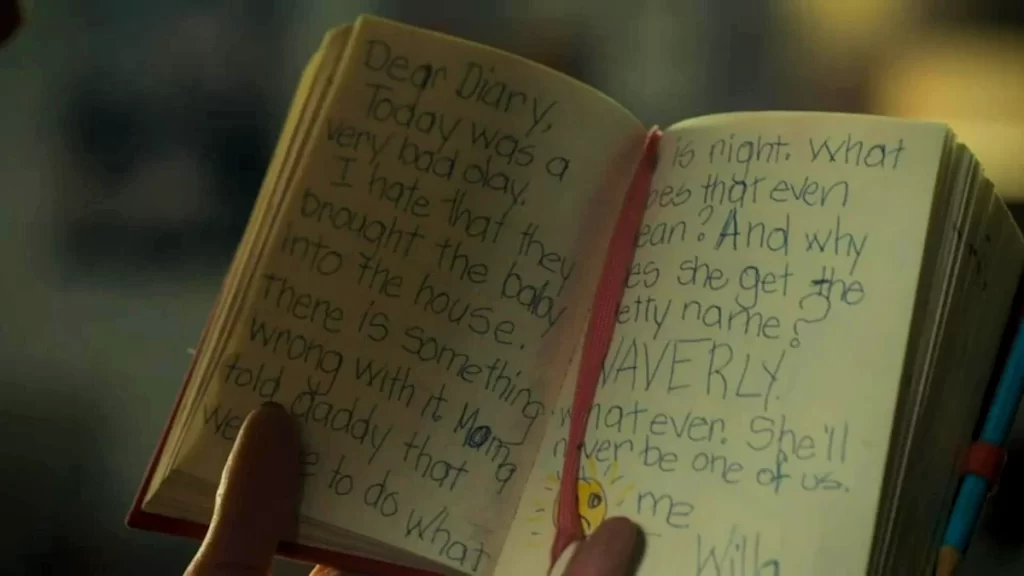 Dear Diary,
Today was a
very bad day.
I hate that they
brought the baby
into the house.
There is something
wrong with it. Mama
told daddy that
we to do what
is right. What
oes that even
ean? And why
es she get the
etty name?
WAVERLY.
Whatever. She'll
never be one of us.
me
Willa